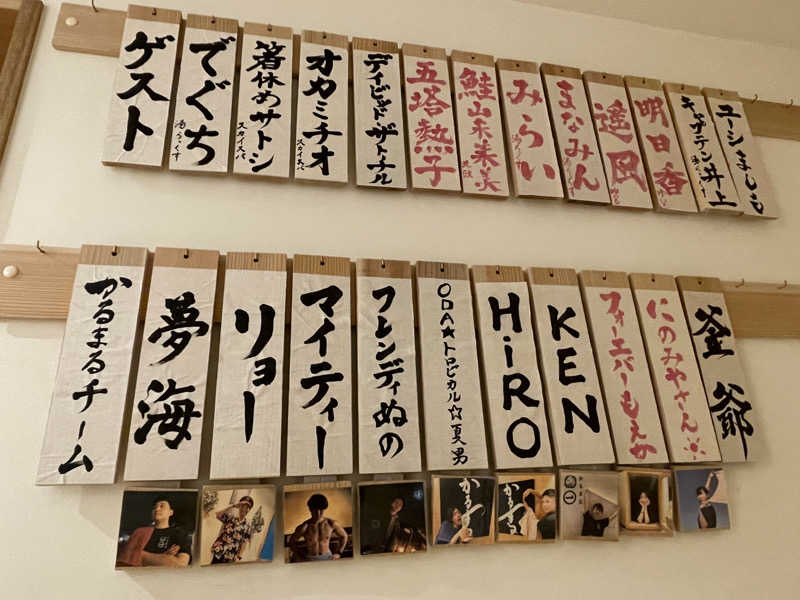 ゲスト
でぐち
箸休めサトシ
スカイスパ
オカミチオ
スカイスパ
デイビッドザトナル
五塔熱子
鮭山未菜美
みらい
まなみん
遥凪
明日香
キャサテン井上
ユーシましも
かるまるチーム
夢海
リョー
マイティー
フレンディぬの
ODA★トロピカル☆夏男
HiRO
KEN
フォーエバーもえか
にのみやさん
釜爺